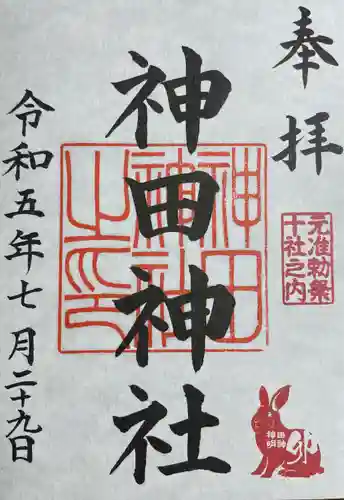 奉拝
元准勅祭
十社之内
神田神社
神田神社之印
神田
神明
卯
令和五年七月二十九日